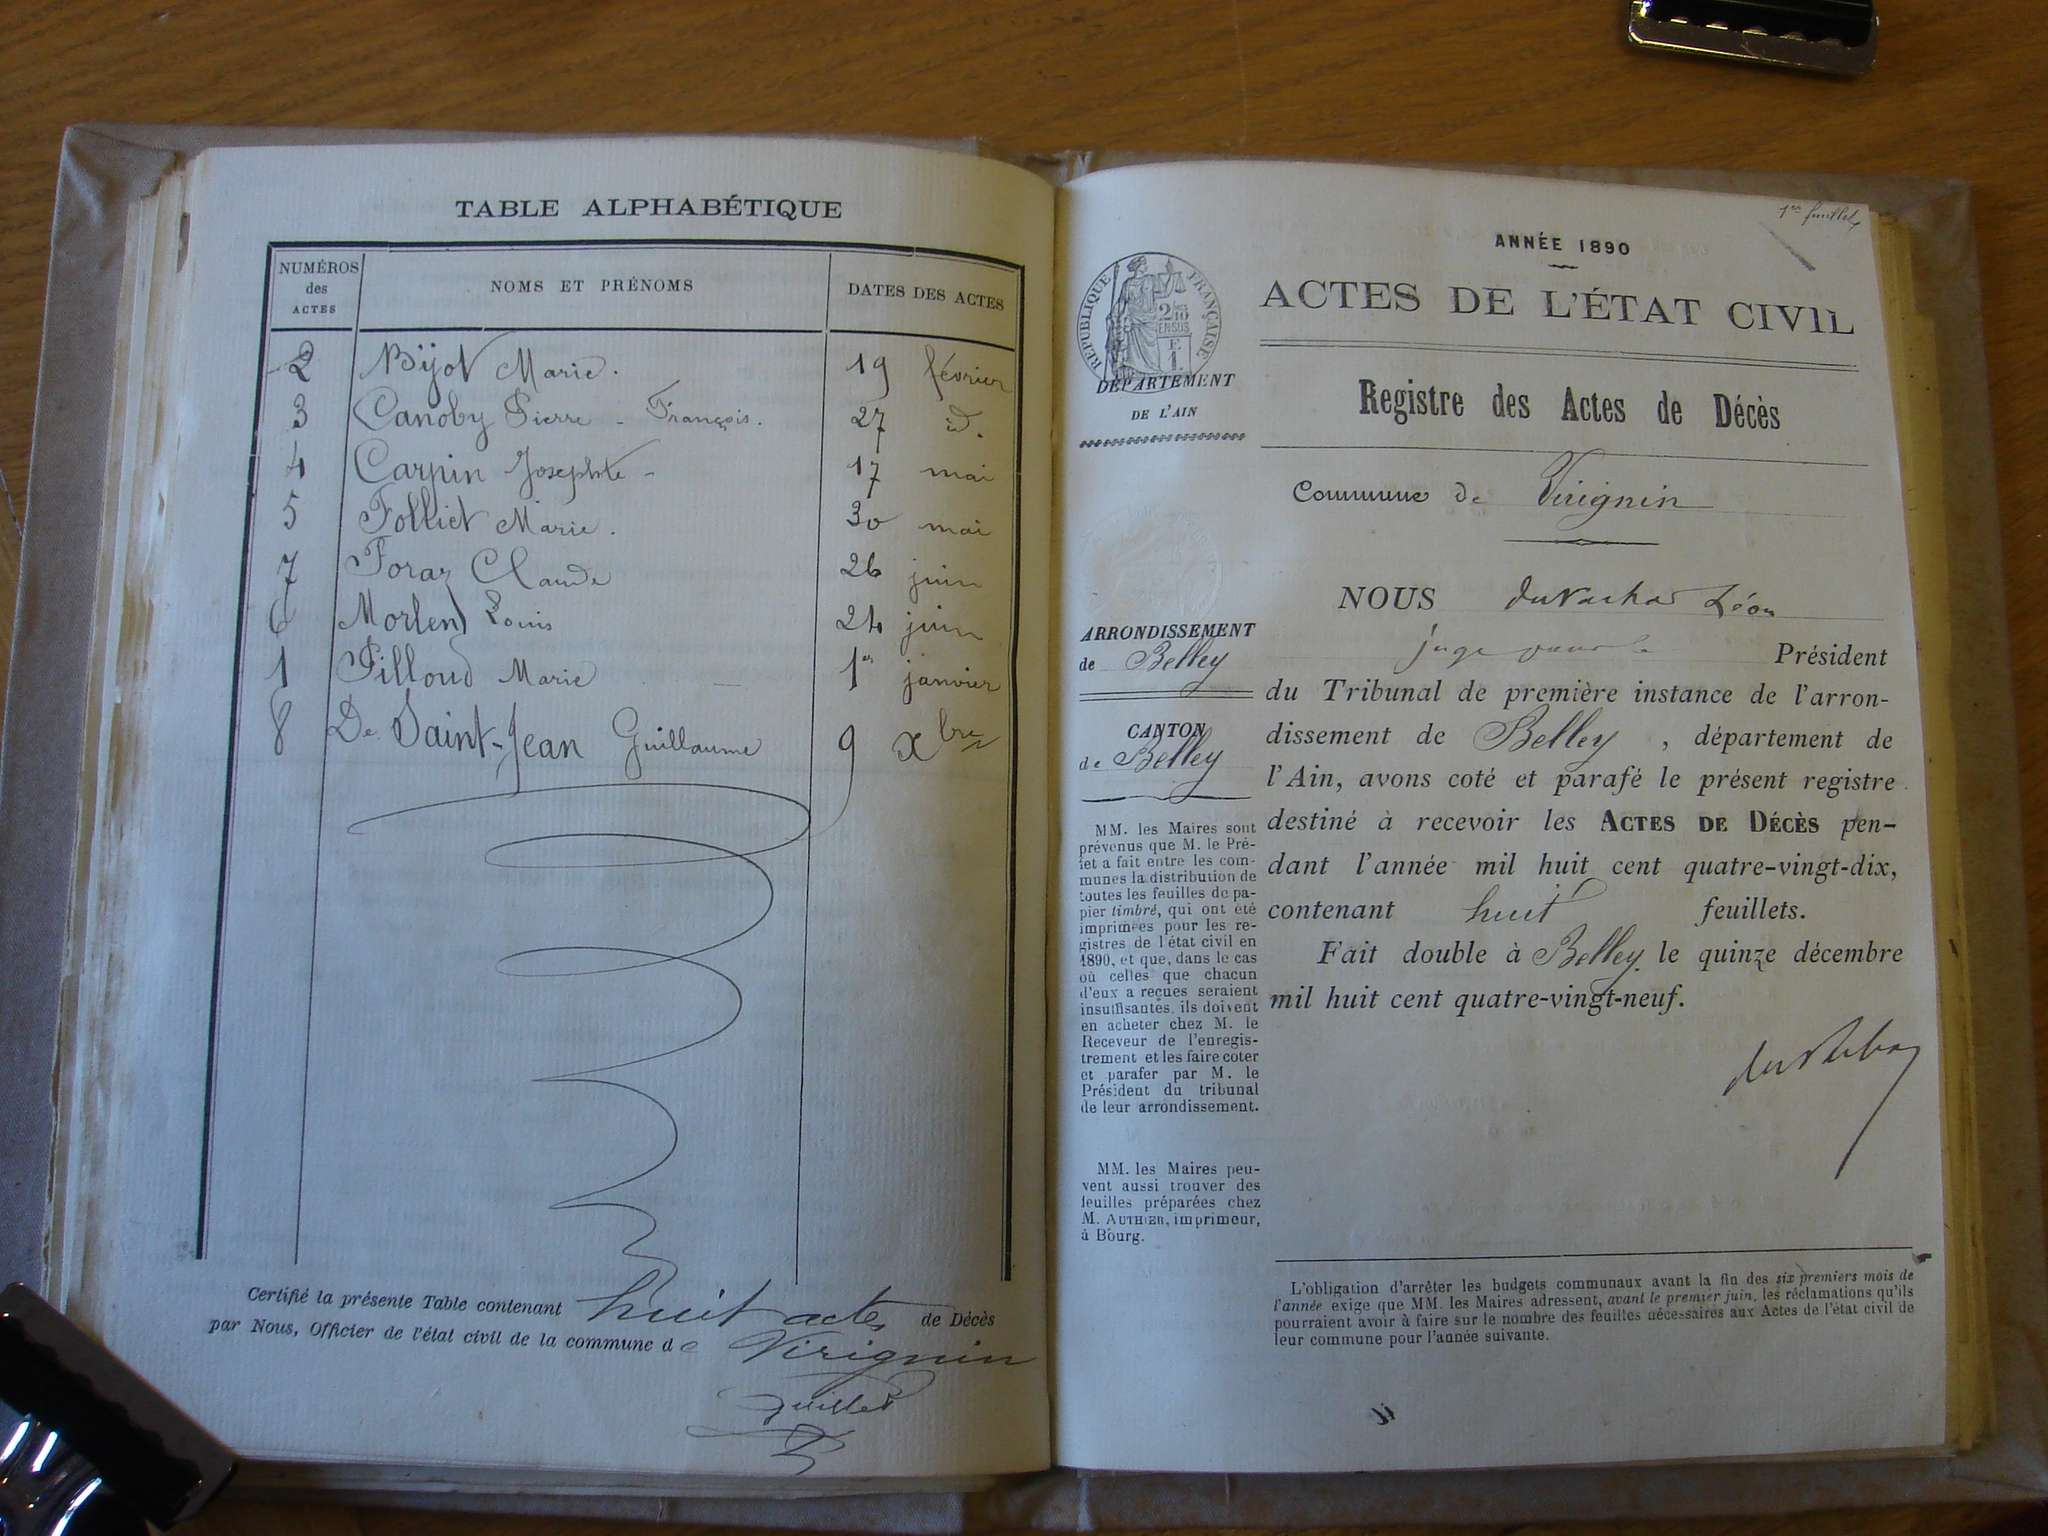 TABLE ALPHABÉTIQUE
NUMÉROS des ACTES
NOMS ET PRÉNOMS
DATES DES ACTES
2 Bijot Marie. 19 février
3 Canoby Pierre - François. 27 id.
4 Carpin Josephte - 17 mai
5 Folliet Marie. 30 mai
7 Foraz Claude 26 juin
6 Morlend Louis 24 juin
1 Pilloud Marie 1er janvier
8 De Saint-Jean Guillaume 9 Xbre
Certifié la présente Table contenant huit actes de Décès
par Nous, Officier de l'état civil de la commune de Virignin
1er feuillet
ANNÉE 1890
ACTES DE L'ÉTAT CIVIL
RÉPUBLIQUE FRANÇAISE
2/10 EN SUS
F. 1.
DÉPARTEMENT
DE L'AIN
Registre des Actes de Décès
Commune de Virignin
NOUS Léon
juge Président
du Tribunal de première instance de l'arron-
dissement de Belley, département de
l'Ain, avons coté et parafé le présent registre
destiné à recevoir les ACTES DE DÉCÈS pen-
dant l'année mil huit cent quatre-vingt-dix,
contenant huit feuillets.
Fait double à Belley, le quinze décembre
mil huit cent quatre-vingt-neuf.
ARRONDISSEMENT
de Belley
CANTON
de Belley
MM. les Maires sont
prévenus que M. le Pré-
fet a fait entre les com-
munes la distribution de
toutes les feuilles de pa-
pier timbré, qui ont été
imprimées pour les re-
gistres de l'état civil en
1890, et que, dans le cas
où celles que chacun
d'eux a reçues seraient
insuffisantes, ils doivent
en acheter chez M. le
Receveur de l'enregis-
trement et les faire coter
et parafer par M. le
Président du tribunal
de leur arrondissement.
MM. les Maires peu-
vent aussi trouver des
feuilles préparées chez
M. AUTHIER, imprimeur,
à Bourg.
L'obligation d'arrêter les budgets communaux avant la fin des six premiers mois de
l'année exige que MM. les Maires adressent, avant le premier juin, les réclamations qu'ils
pourraient avoir à faire sur le nombre des feuilles nécessaires aux Actes de l'état civil de
leur commune pour l'année suivante.